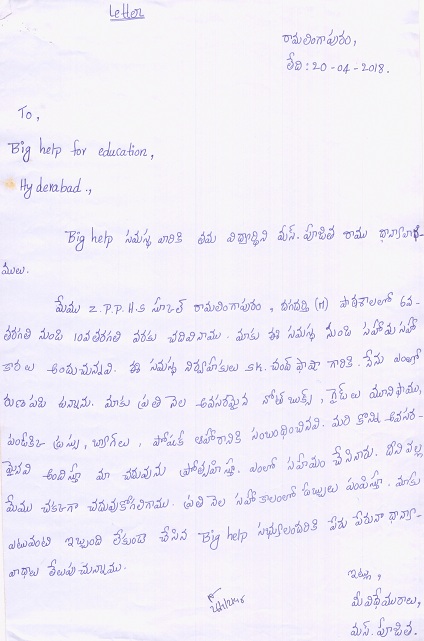 Letter
రామలింగాపురం,
తేది : 20-04-2018.
To,
Big help for education,
Hyderabad.,
Big help సమస్థ వారికి తమ విద్యార్థిని ఎస్. పూజిత రాము ధాన్యావాద
ములు.
మేము Z.P.P.H.S స్కూల్ రామలింగాపురం, దగదర్తి (M) పాఠశాలలో 6వ
తరగతి నుండి 10వ తరగతి వరకు చదివినాము. మాకు ఈ సమస్థ నుండి సహాయసహ
కారలు అందుచున్నవి. ఈ సమస్థ నిర్వాహకులు SK. చాంద్ పాషా గారికి. నేను ఎంతో
రుణపడి ఉన్నాను. మాకు ప్రతి నెల అవసరమైన నోట్ బుక్స్, గైడ్లు యూనిఫాము,
పండికి డ్రస్సు, బ్యాగ్లు, పోషక ఆహారానికి సంబంధించినవి. మరి కొన్ని అవసర
మైనవి అందిస్తూ మా చదువును ప్రోత్సహిస్తూ. ఎంతో సహాయం చేసినారు. దీని వల్ల
మేము చక్కగా చదువుకోగలిగాము. ప్రతి నెల సహా కాలంలో డబ్బులు పంపిస్తూ. మాకు
ఎటువంటి ఇబ్బంది లేకుండా చేసిన Big help సభ్యులందరికి పేరు పేరునా ధాన్యా
వాదాలు తెలుపుచున్నాము.
ఇట్లు,
మీ విధేయురాలు,
ఎస్. పూజిత.